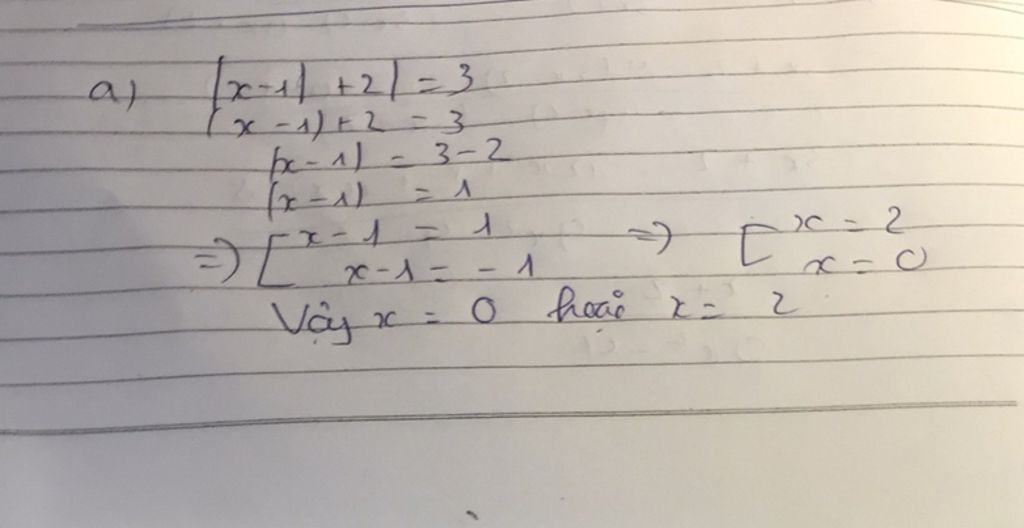 a) |x-1| +2| = 3
|x-1|+2 = 3
|x-1| = 3-2
|x-1| = 1
=> [ x-1 = 1 => [ x = 2
x-1 = -1 x = 0
Vậy x = 0 hoặc x = 2